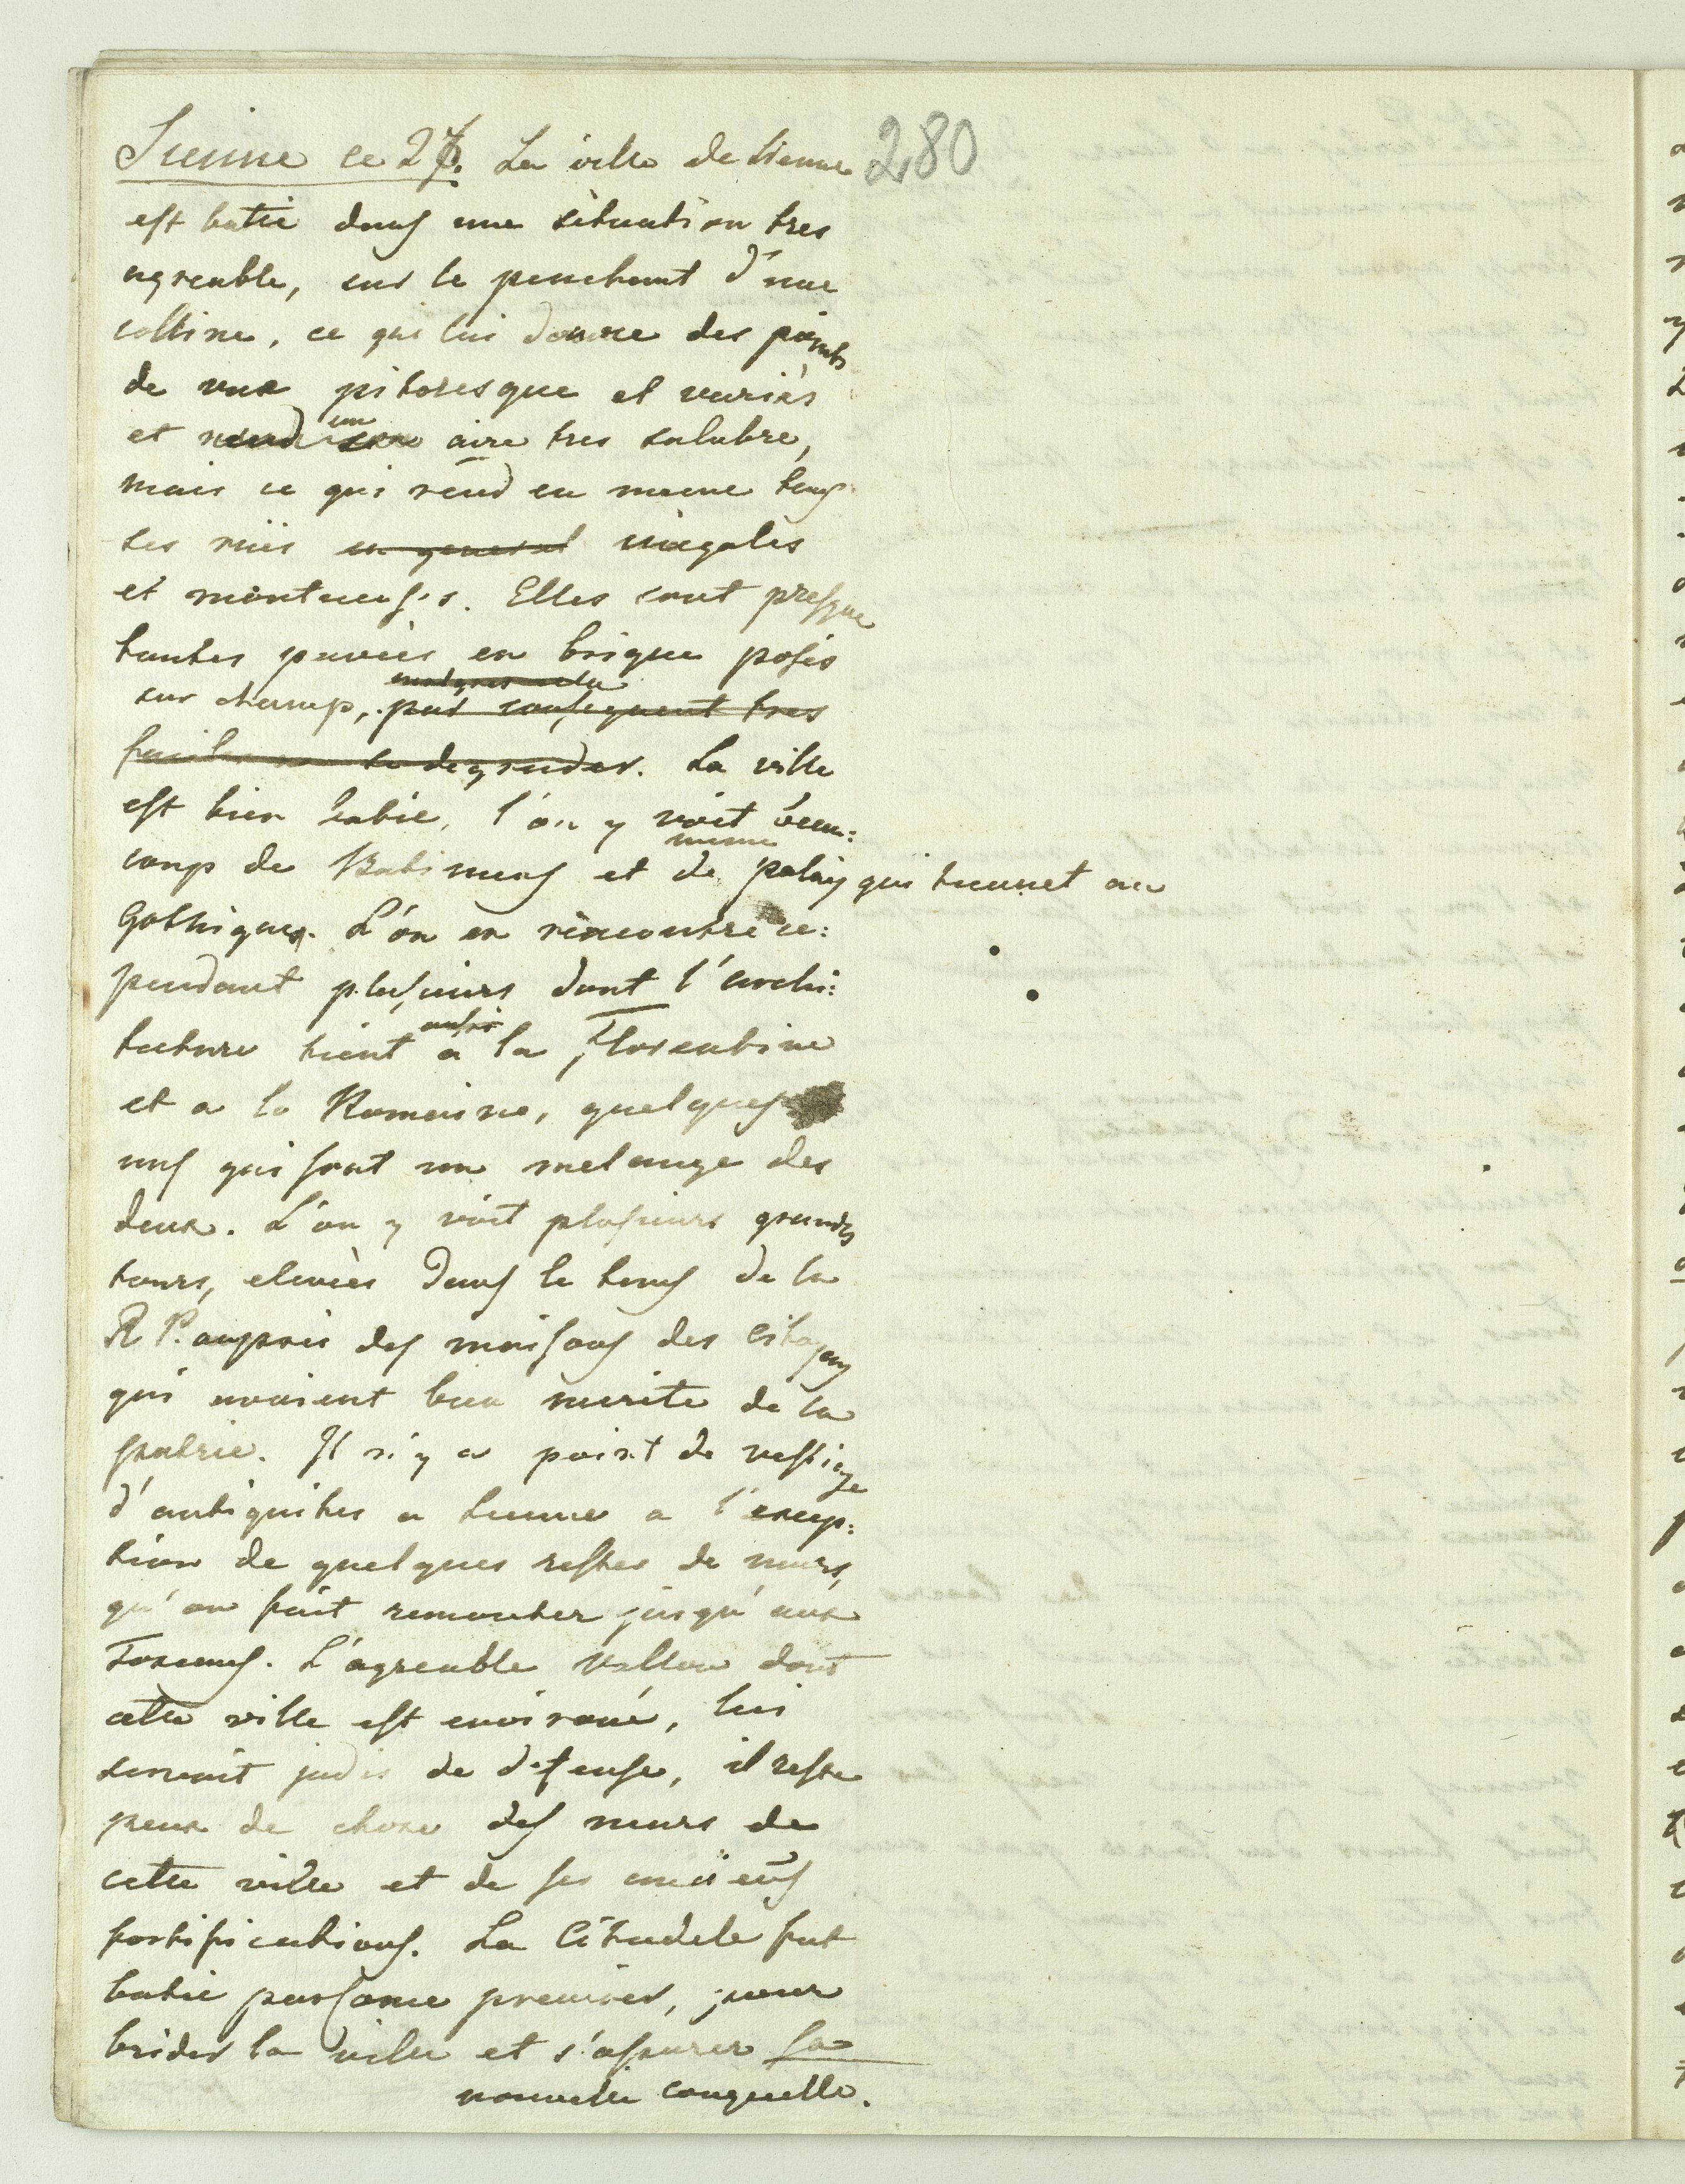 Sienne ce 27. La ville de Sienne 280
est batie dans une situation tres
agreable, sur le penchant d'une
colline, ce qui lui donne des points
de vue pitoresque et variés
et rend un son aire tres salubre,
mais ce qui rend en meme tems
ses rües en general inégales
et montueuses. Elles sont presque
toutes pavées en brique posés
malgres cela
sur champ, par consequent tres
faciles a se degrader. La ville
est bien batie, l'on y voit beau:
meme
coup de Batimens et de palais qui tiennet au
Gothique. L'on en rencontre ce:
pendant plusieurs dont l'archi:
aussi
tecture tient a la Florentine
et a la Romaine, quelques
uns qui sont un melange des
deux. L'on y voit plusieurs grandes
tours, elevées dans le tems de la
R P. aupres des maisons des citoyens
qui avaient bien merite de la
patrie. Il n'y a point de vestige
d'antiquites a Sienne a l'excep:
tion de quelques restes de murs,
qu'on fait remonter jusqu'aux
Toscans. L'agreable vallon dont
cette ville est environé, lui
servait jadis de defense, il reste
peux de chose des murs de
cette ville et de ses anciens
fortifications. La Citadele fut
batie par Come premier, pour
brider la ville et s'assurer sa
nouvelle conquette.